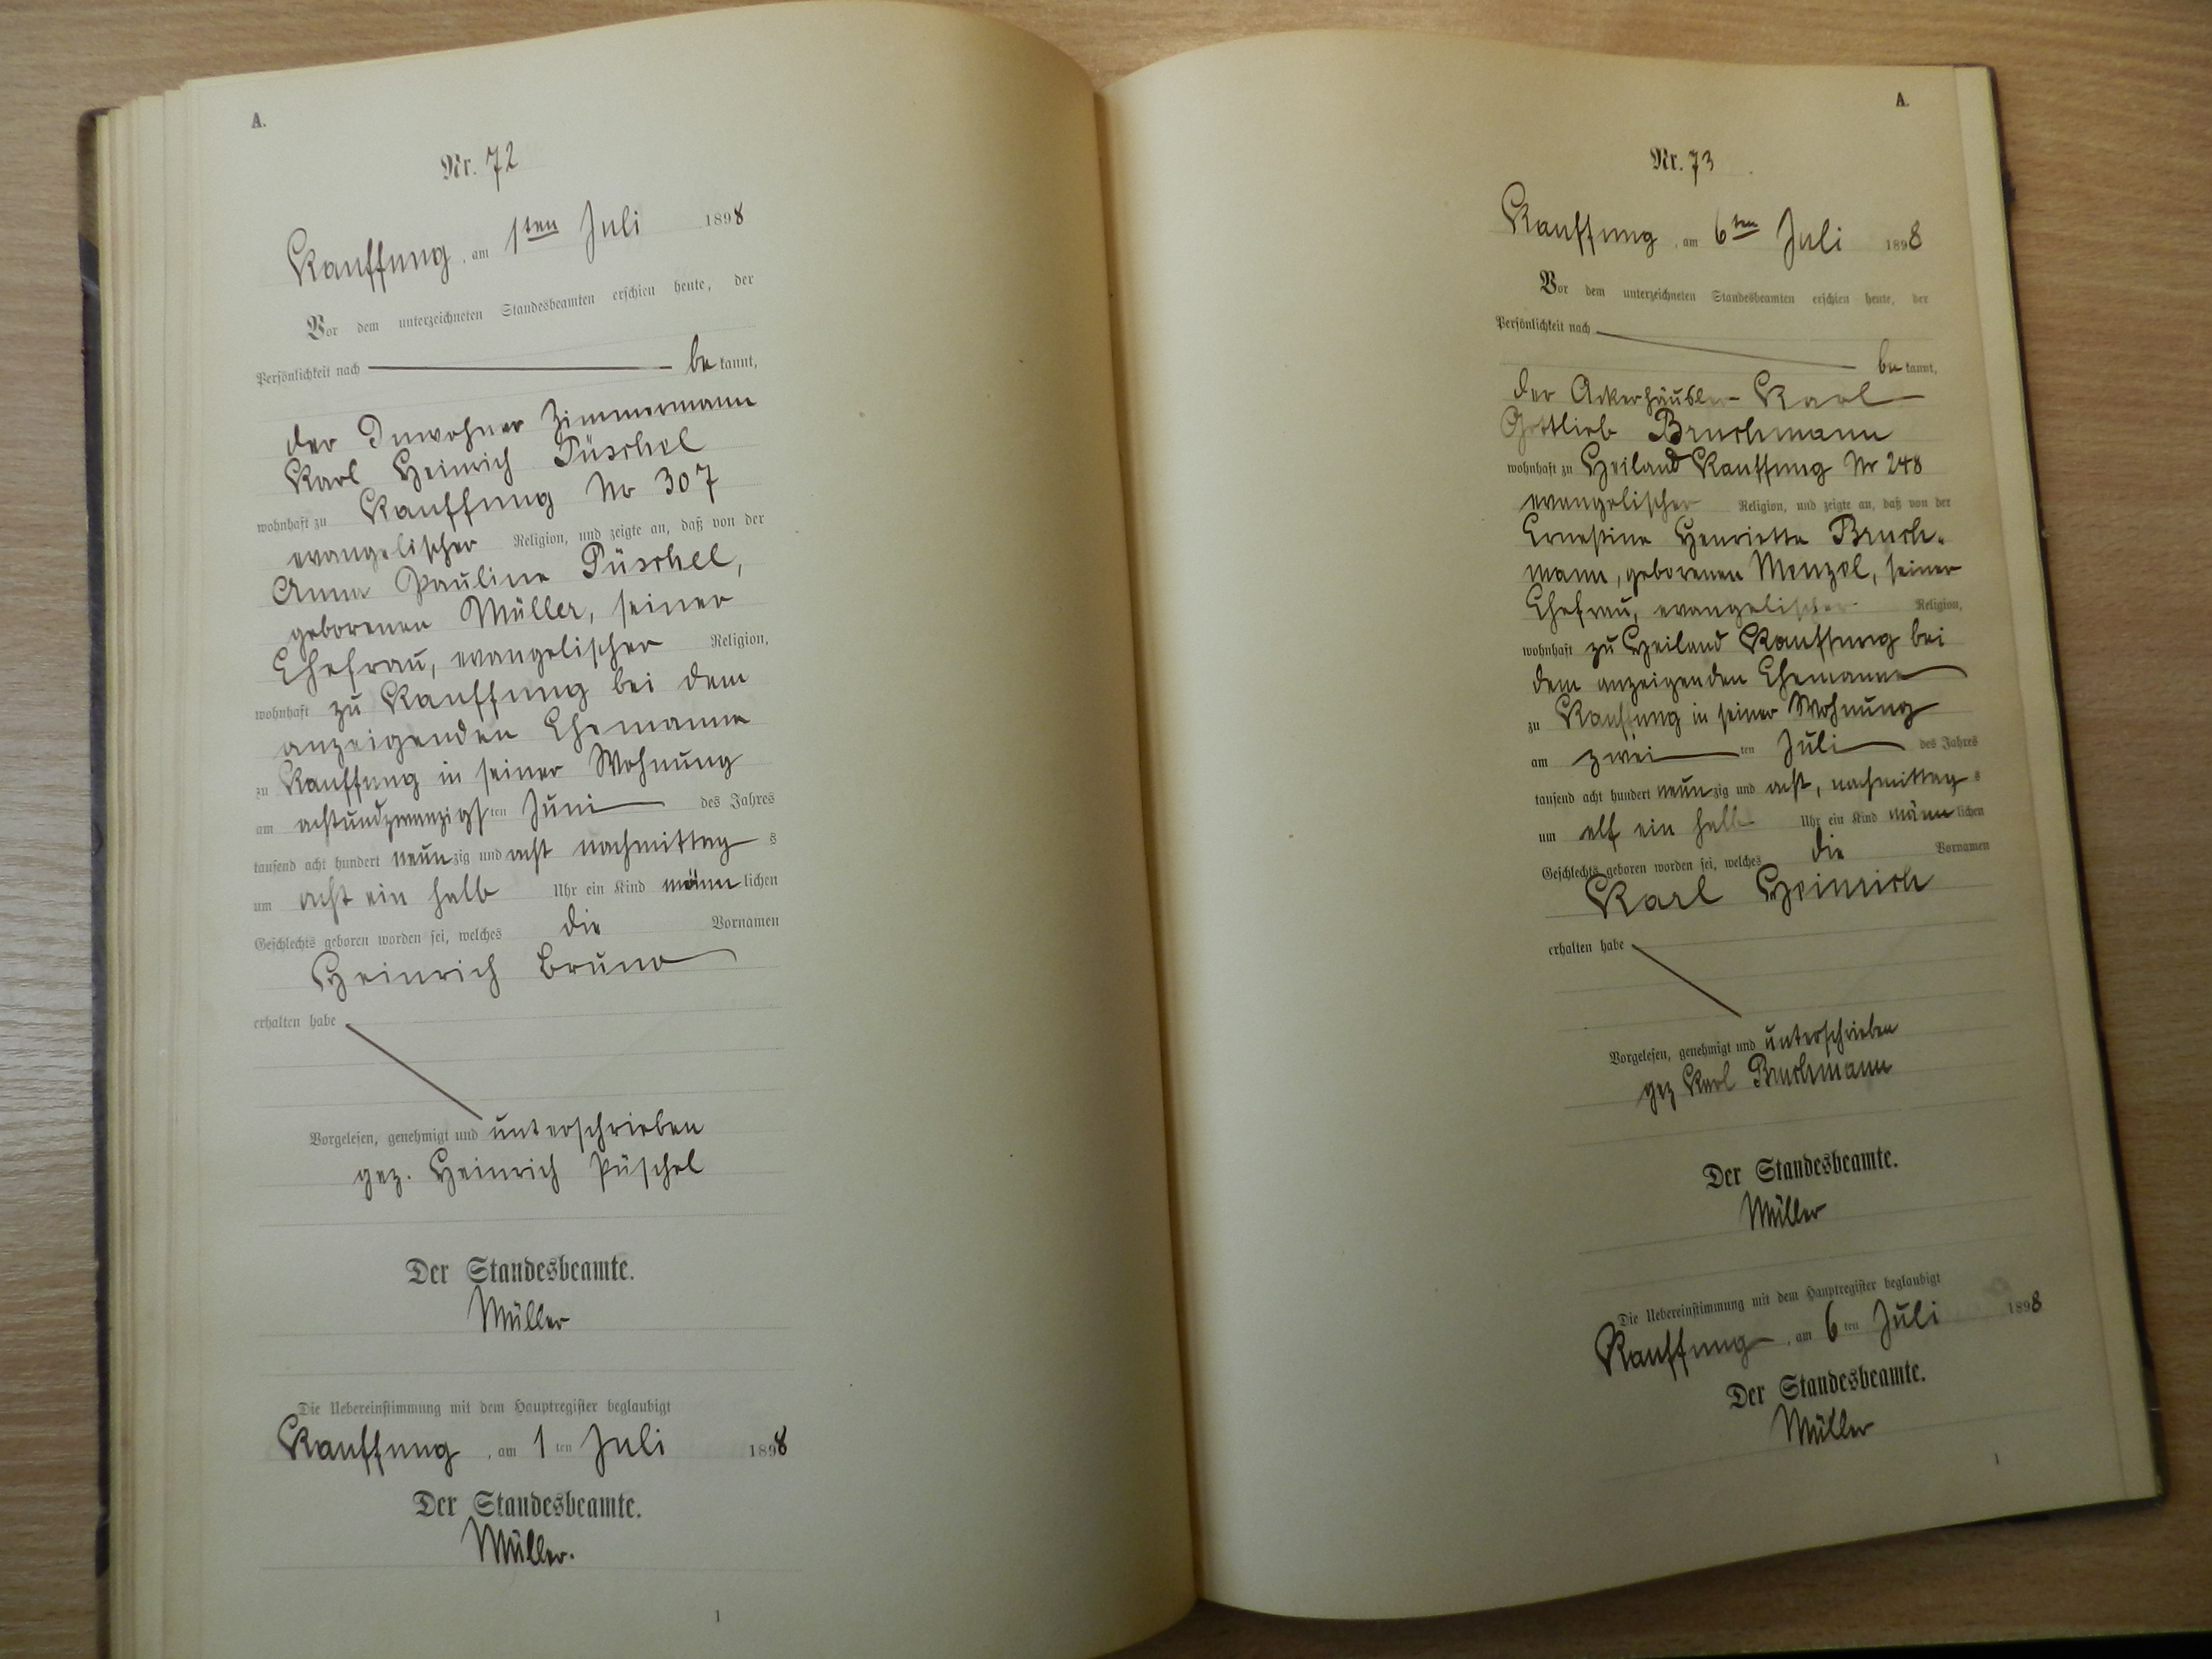 A.
Nr. 72
Kauffung, am 1ten Juli 1898
Vor dem unterzeichneten Standesbeamten erschien heute, der
Persönlichkeit nach be kannt,
der Inwohner Zimmermann
Karl Heinrich Püschel
wohnhaft zu Kauffung Nr 307
evangelischer Religion, und zeigte an, daß von der
Anna Pauline Püschel,
geborenen Müller, seiner
Ehefrau, evangelischer Religion,
wohnhaft zu Kauffung bei dem
anzeigenden Ehemanne
zu Kauffung in seiner Wohnung
am achtundzwanzigsten Juni des Jahres
tausend acht hundert neunzig und acht nachmittag s
um acht ein halb Uhr ein Kind männlichen
Geschlechts geboren worden sei, welches die Vornamen
Heinrich Bruno
erhalten habe
Vorgelesen, genehmigt und unterschrieben
gez. Heinrich Püschel
Der Standesbeamte.
Müller
Die Uebereinstimmung mit dem Hauptregister beglaubigt
Kauffung, am 1ten Juli 1898
Der Standesbeamte.
Müller.
1
A.
Nr. 73
Kauffung, am 6ten Juli 1898
Vor dem unterzeichneten Standesbeamten erschien heute, der
Persönlichkeit nach
be kannt,
der Ackerhäusler Karl
Gottlieb Bruchmann
wohnhaft zu Heiland Kauffung Nr 248
evangelischer Religion, und zeigte an, daß von der
Ernestine Henriette Bruch-
mann, geborenen Menzel, seiner
Ehefrau, evangelischer Religion,
wohnhaft zu Heiland Kauffung bei
dem anzeigenden Ehemanne
zu Kauffung in seiner Wohnung
am zweiten Juli des Jahres
tausend acht hundert neunzig und acht, nachmittag s
um elf ein halb Uhr ein Kind männlichen
Geschlechts geboren worden sei, welches die Vornamen
Karl Heinrich
erhalten habe
Vorgelesen, genehmigt und unterschrieben
gez Karl Bruchmann
Der Standesbeamte.
Müller
Die Uebereinstimmung mit dem Hauptregister beglaubigt
Kauffung, am 6ten Juli 1898
Der Standesbeamte.
Müller
1